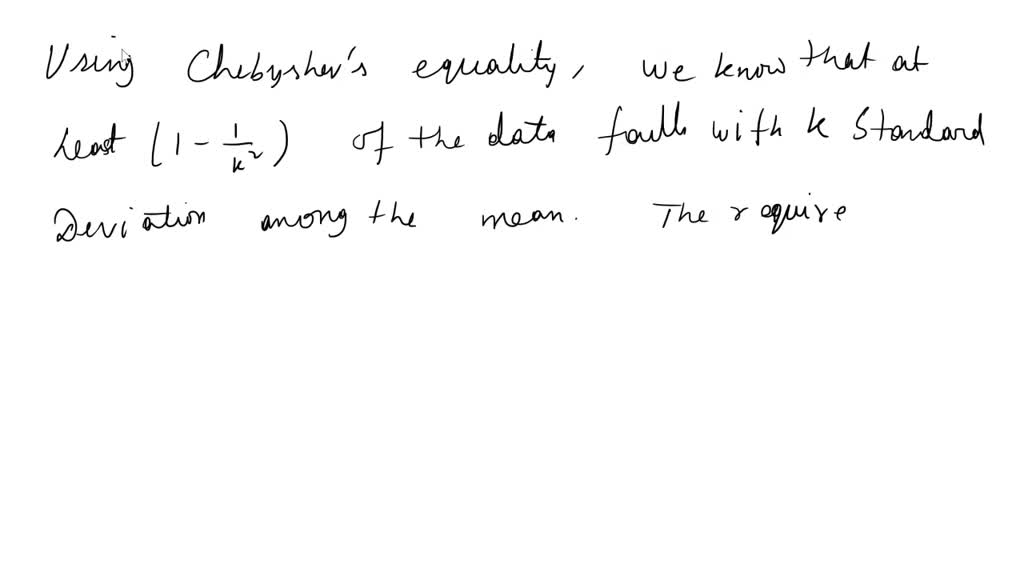 Using Chebyshev's equality, we know that at
least (1 - 1/k²) of the data falls with k Standard
Deviation among the mean. The require